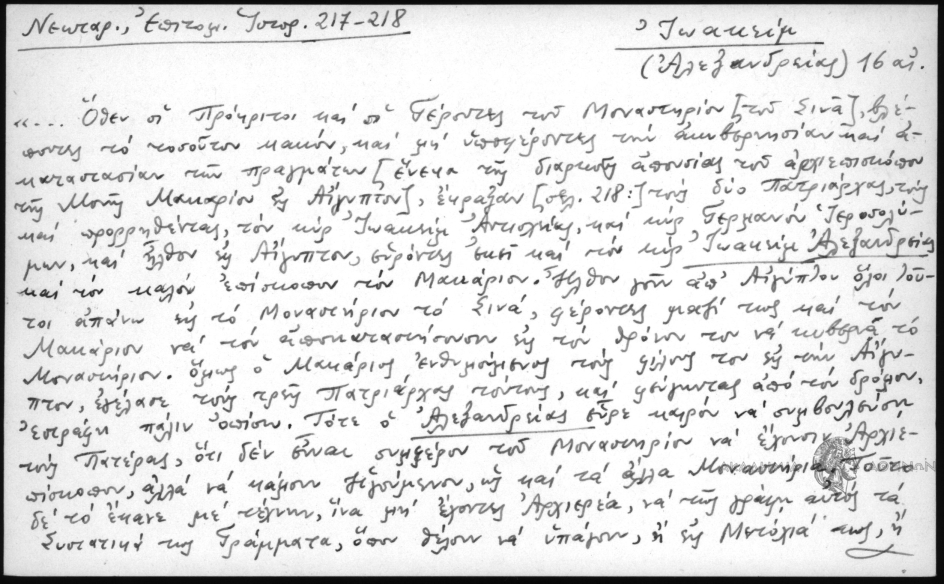 Νεκταρ., Ἐπιτομ. Ἱστορ. 217-218
Ἰωακείμ
(Ἀλεξανδρείας) 16 αἰ.
«... Ὅθεν οἱ Πρόκριτοι καὶ οἱ Γέροντες τοῦ Μοναστηρίου [τοῦ Σινᾶ], βλέ-
ποντες τὸ τοσοῦτον κακόν, καὶ μὴ ὑποφέροντες τὴν ἀκυβερνησίαν καὶ ἀ-
καταστασίαν τῶν πραγμάτων [ἕνεκα τῆς διαρκοῦς ἀπουσίας τοῦ ἀρχιεπισκόπου
τῆς Μονῆς Μακαρίου εἰς Αἴγυπτον], ἔκραξαν [σελ. 218:] τοὺς δύο Πατριάρχας, τοὺς
καὶ προρρηθέντας, τὸν κὺρ Ἰωακεὶμ Ἀντιοχείας, καὶ κὺρ Γερμανὸν Ἱεροσολύ-
μων, καὶ ἦλθον εἰς Αἴγυπτον, εὑρόντες ἐκεῖ καὶ τὸν κὺρ Ἰωακεὶμ Ἀλεξανδρείας
καὶ τὸν καλὸν ἐπίσκοπον τὸν Μακάριον. Ἦλθον γοῦν ἀπ' Αἰγύπτου ὅλοι τοῦ-
τοι ἀπάνω εἰς τὸ Μοναστήριον τὸ Σινᾶ, φέροντες μαζί τως καὶ τὸν
Μακάριον νὰ τὸν ἀποκαταστήσουσιν εἰς τὸν θρόνον του νὰ κυβερνᾷ τὸ
Μοναστήριον. Ὅμως ὁ Μακάριος ἐνθυμούμενος τοὺς φίλους του εἰς τὴν Αἴγυ-
πτον, ἐγέλασε τοὺς τρεῖς Πατριάρχας τούτους, καὶ φεύγωντας ἀπὸ τὸν δρόμον,
ἐστράφη πάλιν ὀπίσω. Τότε ὁ Ἀλεξανδρείας εὗρε καιρὸν νὰ συμβουλεύσῃ
τοὺς Πατέρας, ὅτι δὲν εἶναι συμφέρον τοῦ Μοναστηρίου νὰ ἔχουσιν Ἀρχιε-
πίσκοπον, ἀλλὰ νὰ κάμουν Ἡγούμενον, ὡς καὶ τὰ ἄλλα Μοναστήρια. Τοῦτο
δὲ τὸ ἔκανε μὲ τέχνην, ἵνα μὴ ἔχοντες Ἀρχιερέα, νὰ τῶς γράφῃ αὐτὸς τὰ
Συστατικά τως Γράμματα, ὅπου θέλουν νὰ ὑπάγουν, ἢ εἰς Μετόχιά τως, ἢ